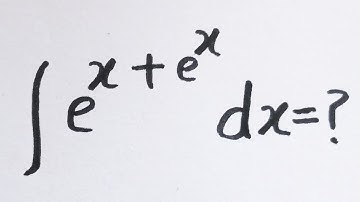 ∫ e^{x + e^x} dx = ?